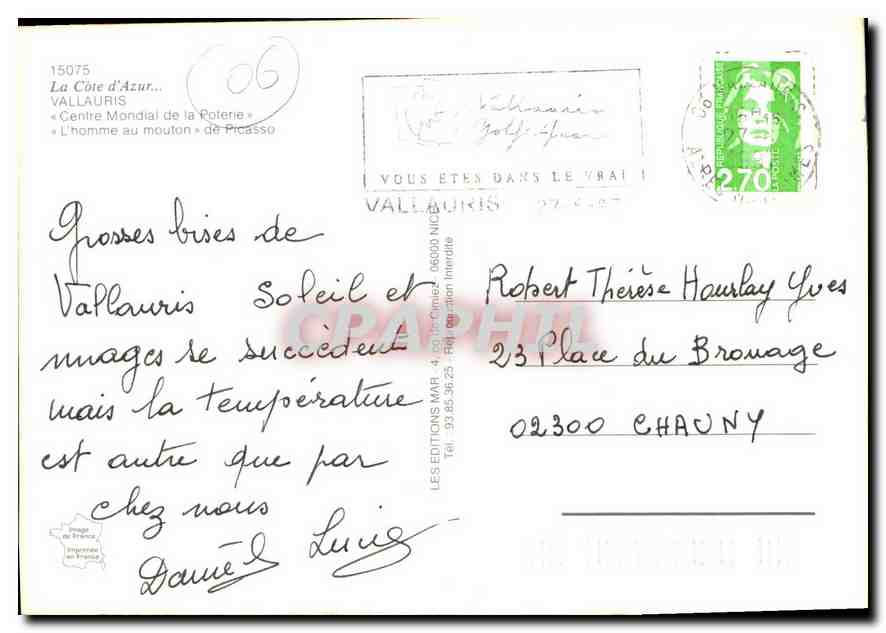 15075
La Côte d'Azur...
VALLAURIS
« Centre Mondial de la Poterie »
« L'homme au mouton » de Picasso
06
Vallauris
Golfe-Juan
VOUS ETES DANS LE VRAI
VALLAURIS
REPUBLIQUE FRANÇAISE
2,70
LA POSTE
Grosses bises de
Vallauris Soleil et
nuages se succèdent
mais la température
est autre que par
chez nous
Daniel Lucie
Image
de France
Imprimée
en France
LES EDITIONS MAR - 4, rue de Cimiez - 06000 NICE
Tél. 93.85.36.25 - Reproduction Interdite
CPAPHIL
Robert Thérèse Hourlay Yves
23 Place du Brouage
02300 CHAUNY